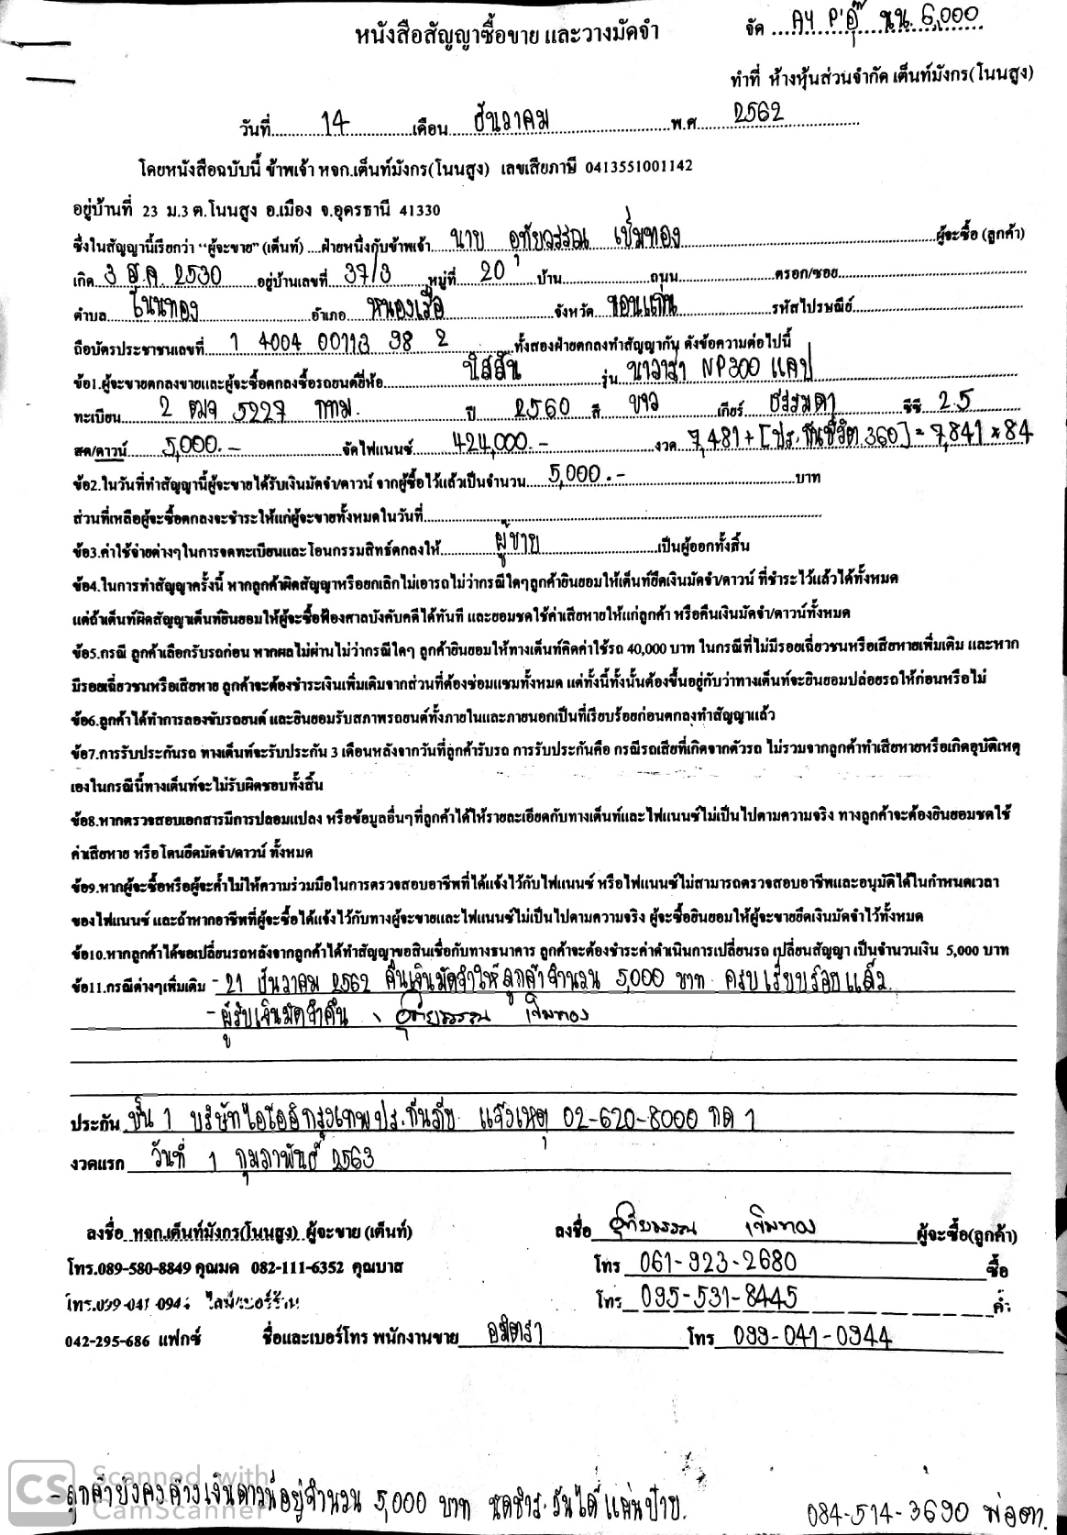 หนังสือสัญญาซื้อขาย และวางมัดจำ
จัด AY P'อุ๊ นน. 6,000
ทำที่ ห้างหุ้นส่วนจำกัด เต็นท์มังกร(โนนสูง)
วันที่ 14 เดือน ธันวาคม พ.ศ 2562
โดยหนังสือฉบับนี้ ข้าพเจ้า หจก.เต็นท์มังกร(โนนสูง) เลขเสียภาษี 0413551001142
อยู่บ้านที่ 23 ม.3 ต.โนนสูง อ.เมือง จ.อุดรธานี 41330
ซึ่งในสัญญานี้เรียกว่า "ผู้จะขาย" (เต็นท์) ฝ่ายหนึ่งกับข้าพเจ้า นาย อุทัยวรรณ เข็มทอง ผู้จะซื้อ (ลูกค้า)
เกิด 3 ส.ค. 2530 อยู่บ้านเลขที่ 37/3 หมู่ที่ 20 บ้าน ถนน ตรอก/ซอย
ตำบล โนนทอง อำเภอ หนองเรือ จังหวัด ขอนแก่น รหัสไปรษณีย์
ถือบัตรประชาชนเลขที่ 1 4004 00113 98 2 ทั้งสองฝ่ายตกลงทำสัญญากัน ดังข้อความต่อไปนี้
ข้อ1.ผู้จะขายตกลงขายและผู้จะซื้อตกลงซื้อรถยนต์ยี่ห้อ นิสสัน รุ่น นาวาร่า NP300 แคป
ทะเบียน 2 ฒฎ 5227 กทม. ปี 2560 สี ขาว เกียร์ ธรรมดา ซีซี 2.5
สด/ดาวน์ 5,000.- จัดไฟแนนซ์ 424,000.- งวด 7,481 + [ปร.กันชีวิต 360] = 7,841 x 84
ข้อ2.ในวันที่ทำสัญญานี้ผู้จะขายได้รับเงินมัดจำ/ดาวน์ จากผู้ซื้อไว้แล้วเป็นจำนวน 5,000.- บาท
ส่วนที่เหลือผู้จะซื้อตกลงจะชำระให้แก่ผู้จะขายทั้งหมดในวันที่
ข้อ3.ค่าใช้จ่ายต่างๆในการจดทะเบียนและโอนกรรมสิทธ์ตกลงให้ ผู้ขาย เป็นผู้ออกทั้งสิ้น
ข้อ4.ในการทำสัญญาครั้งนี้ หากลูกค้าผิดสัญญาหรือยกเลิกไม่เอารถไม่ว่ากรณีใดๆลูกค้ายินยอมให้เต็นท์ยึดเงินมัดจำ/ดาวน์ ที่ชำระไว้แล้วได้ทั้งหมด
แต่ถ้าเต็นท์ผิดสัญญาเต็นท์ยินยอมให้ผู้จะซื้อฟ้องศาลบังคับคดีได้ทันที และยอมชดใช้ค่าเสียหายให้แก่ลูกค้า หรือคืนเงินมัดจำ/ดาวน์ทั้งหมด
ข้อ5.กรณี ลูกค้าเลือกรับรถก่อน หากผลไม่ผ่านไม่ว่ากรณีใดๆ ลูกค้ายินยอมให้ทางเต็นท์คิดค่าใช้รถ 40,000 บาท ในกรณีที่ไม่มีรอยเฉี่ยวชนหรือเสียหายเพิ่มเติม และหาก
มีรอยเฉี่ยวชนหรือเสียหาย ลูกค้าจะต้องชำระเงินเพิ่มเติมจากส่วนที่ต้องซ่อมแซมทั้งหมด แต่ทั้งนี้ทั้งนั้นต้องขึ้นอยู่กับว่าทางเต็นท์จะยินยอมปล่อยรถให้ก่อนหรือไม่
ข้อ6.ลูกค้าได้ทำการลองขับรถยนต์ และยินยอมรับสภาพรถยนต์ทั้งภายในและภายนอกเป็นที่เรียบร้อยก่อนตกลงทำสัญญาแล้ว
ข้อ7.การรับประกันรถ ทางเต็นท์จะรับประกัน 3 เดือนหลังจากวันที่ลูกค้ารับรถ การรับประกันคือ กรณีรถเสียที่เกิดจากตัวรถ ไม่รวมจากลูกค้าทำเสียหายหรือเกิดอุบัติเหตุ
เองในกรณีนี้ทางเต็นท์จะไม่รับผิดชอบทั้งสิ้น
ข้อ8.หากตรวจสอบเอกสารมีการปลอมแปลง หรือข้อมูลอื่นๆที่ลูกค้าได้ให้รายละเอียดกับทางเต็นท์และไฟแนนซ์ไม่เป็นไปตามความจริง ทางลูกค้าจะต้องยินยอมชดใช้
ค่าเสียหาย หรือโดนยึดมัดจำ/ดาวน์ ทั้งหมด
ข้อ9.หากผู้จะซื้อหรือผู้จะค้ำไม่ให้ความร่วมมือในการตรวจสอบอาชีพที่ได้แจ้งไว้กับไฟแนนซ์ หรือไฟแนนซ์ไม่สามารถตรวจสอบอาชีพและอนุมัติได้ในกำหนดเวลา
ของไฟแนนซ์ และถ้าหากอาชีพที่ผู้จะซื้อได้แจ้งไว้กับทางผู้จะขายและไฟแนนซ์ไม่เป็นไปตามความจริง ผู้จะซื้อยินยอมให้ผู้จะขายยึดเงินมัดจำไว้ทั้งหมด
ข้อ10.หากลูกค้าได้ขอเปลี่ยนรถหลังจากลูกค้าได้ทำสัญญาขอสินเชื่อกับทางธนาคาร ลูกค้าจะต้องชำระค่าดำเนินการเปลี่ยนรถ เปลี่ยนสัญญา เป็นจำนวนเงิน 5,000 บาท
ข้อ11.กรณีต่างๆเพิ่มเติม - 21 ธันวาคม 2562 คืนเงินมัดจำให้ลูกค้าจำนวน 5,000 บาท ครบเรียบร้อยแล้ว
- ผู้รับเงินมัดจำคืน อุทัยวรรณ เข็มทอง
ประกัน ชั้น 1 บริษัทไอโออิกรุงเทพประกันภัย แจ้งเหตุ 02-620-8000 กด 1
งวดแรก วันที่ 1 กุมภาพันธ์ 2563
ลงชื่อ หจก.เต็นท์มังกร(โนนสูง) ผู้จะขาย (เต็นท์) ลงชื่อ อุทัยวรรณ เข็มทอง ผู้จะซื้อ(ลูกค้า)
โทร.089-580-8849 คุณมด 082-111-6352 คุณบาส โทร 061-923-2680 ซื้อ
โทร.099-041-094 ไลน์/เบอร์ร้าน โทร 095-531-8445 ค้ำ
042-295-686 แฟกซ์ ชื่อและเบอร์โทร พนักงานขาย อมิตรา โทร 099-041-0944
CS Scanned with
CamScanner
- ลูกค้ายังคงค้างเงินดาวน์อยู่จำนวน 5,000 บาท นัดชำระวันได้แผ่นป้าย. 084-514-3690 พ่อตา.